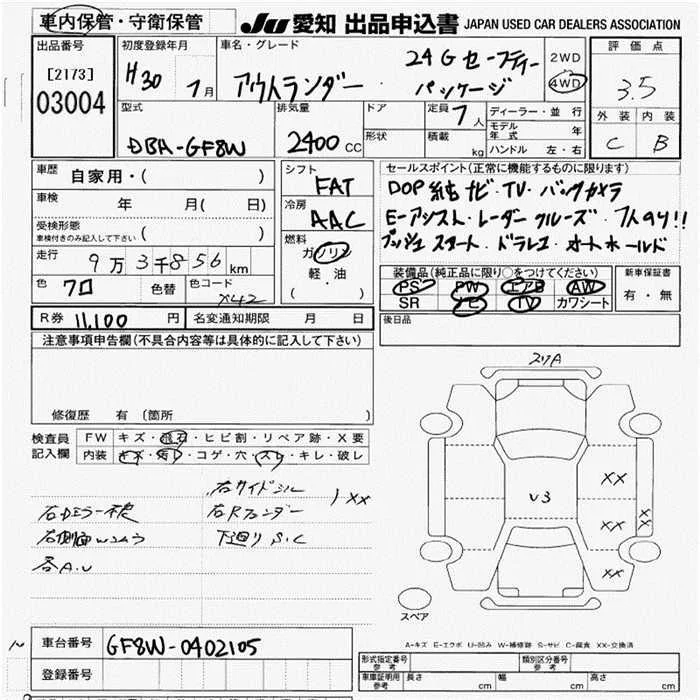 車内保管・守衛保管
JU 愛知 出品申込書 JAPAN USED CAR DEALERS ASSOCIATION
出品番号
[2173]
03004
初度登録年月
H30 1月
車名・グレード
アウトランダー
24Gセーフティー
パッケージ
2WD
4WD
評価点
3.5
外装 内装
C B
型式
DBA-GF8W
排気量
2400 CC
ドア
形状
定員 7人
積載 kg
ディーラー・並行
モデル年式 年
ハンドル 左・右
車歴 自家用・( )
車検 年 月( 日)
受検形態 ( )
車検付きのみ記入して下さい
走行 9万3千856km
色 クロ 色替 色コード X42
シフト
FAT
冷房
AAC
燃料
ガソリン
軽・油
( ・ )
セールスポイント(正常に機能するものに限ります)
DOP純ナビ・TV・バックカメラ
E-アシスト・レーダークルーズ・7人のり!!
プッシュスタート・ドラレコ・オートホールド
装備品(純正品に限り○をつけてください)
PS PW エアB AW
SR ナビ TV カワシート
新車保証書
有・無
R券 11,100 円 名変通知期限 月 日
後日品
注意事項申告欄(不具合内容等は具体的に記入して下さい)
修復歴 有 〔箇所 〕
検査員記入欄
FW キズ・飛石・ヒビ割・リペア跡・X要
内装 キズ・汚レ・コゲ・穴・スレ・キレ・破レ
右サイドシル
右Rフェンダー
)XX
下廻りS.C
右側面
各A.U
スリA
U3
XX
XX
XX
XX
スペア
A-キズ E-エクボ U-凹み W-補修跡 S-サビ C-腐食 XX-交換済
車台番号 GF8W-0402105
登録番号
形式指定番号 参考
類別区分番号 参考
車庫証明用 参考 長さ cm 幅 cm 高さ cm